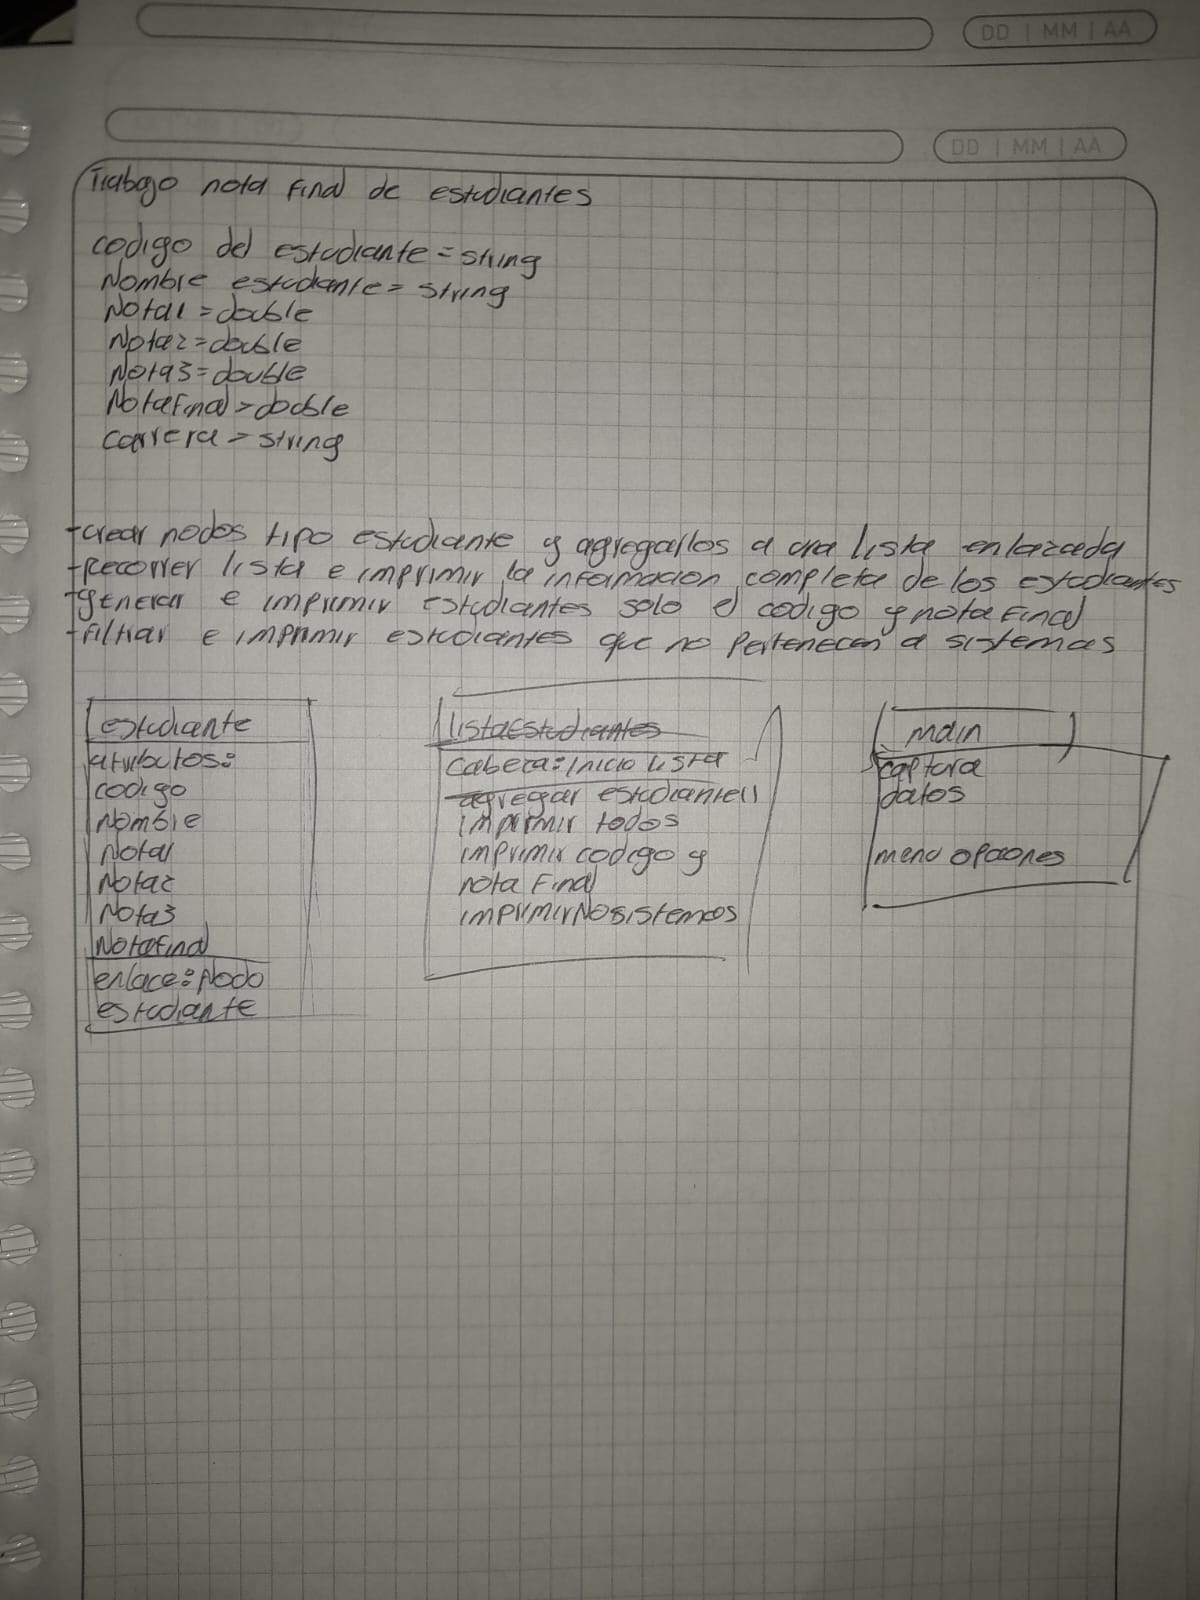 DD | MM | AA
DD | MM | AA
Trabajo nota final de estudiantes
codigo del estudiante = string
Nombre estudiante = string
Nota1 = double
Nota2 = double
Nota3 = double
NotaFinal = double
carrera = string
- crear nodos tipo estudiante y agregarlos a una lista enlazada
- Recorrer lista e imprimir la informacion completa de los estudiantes
- generar e imprimir estudiantes solo el codigo y nota Final
- Filtrar e imprimir estudiantes que no pertenecen a sistemas
estudiante
atributos:
codigo
Nombre
Nota1
Nota2
Nota3
NotaFinal
enlace: Nodo
estudiante
listaEstudiantes
Cabeza: inicio lista
agregar estudiante()
imprimir todos
imprimir codigo y
nota Final
imprimirNosistemas
main
captura
datos
menu opciones